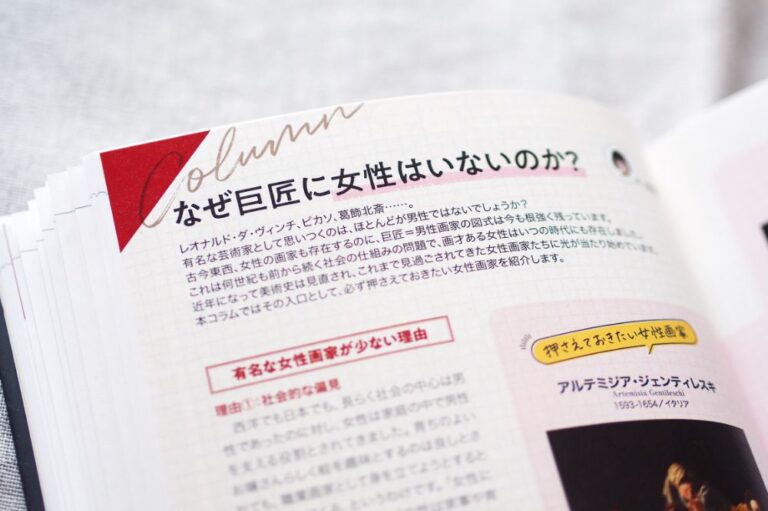 Column
なぜ巨匠に女性はいないのか?
レオナルド・ダ・ヴィンチ、ピカソ、葛飾北斎……。
有名な芸術家として思いつくのは、ほとんどが男性ではないでしょうか?
古今東西、女性の画家も存在するのに、巨匠=男性画家の図式は今も根強く残っています。
これは何世紀も前から続く社会の仕組みの問題で、画才ある女性はいつの時代にも存在しました。
近年になって美術史は見直され、これまで見過ごされてきた女性画家たちに光が当たり始めています。
本コラムではその入口として、必ず押さえておきたい女性画家を紹介します。
有名な女性画家が少ない理由
理由①:社会的な偏見
西洋でも日本でも、長らく社会の中心は男
性であったのに対し、女性は家庭の中で男性
を支える役割とされてきました。育ちのよい
お嬢さんらしく絵を趣味とするのは良しとさ
れても、職業画家として身を立てようとすると
というわけです。「女性に
押さえておきたい女性画家
アルテミジア・ジェンティレスキ
Artemisia Gentileschi
1593-1654/イタリア